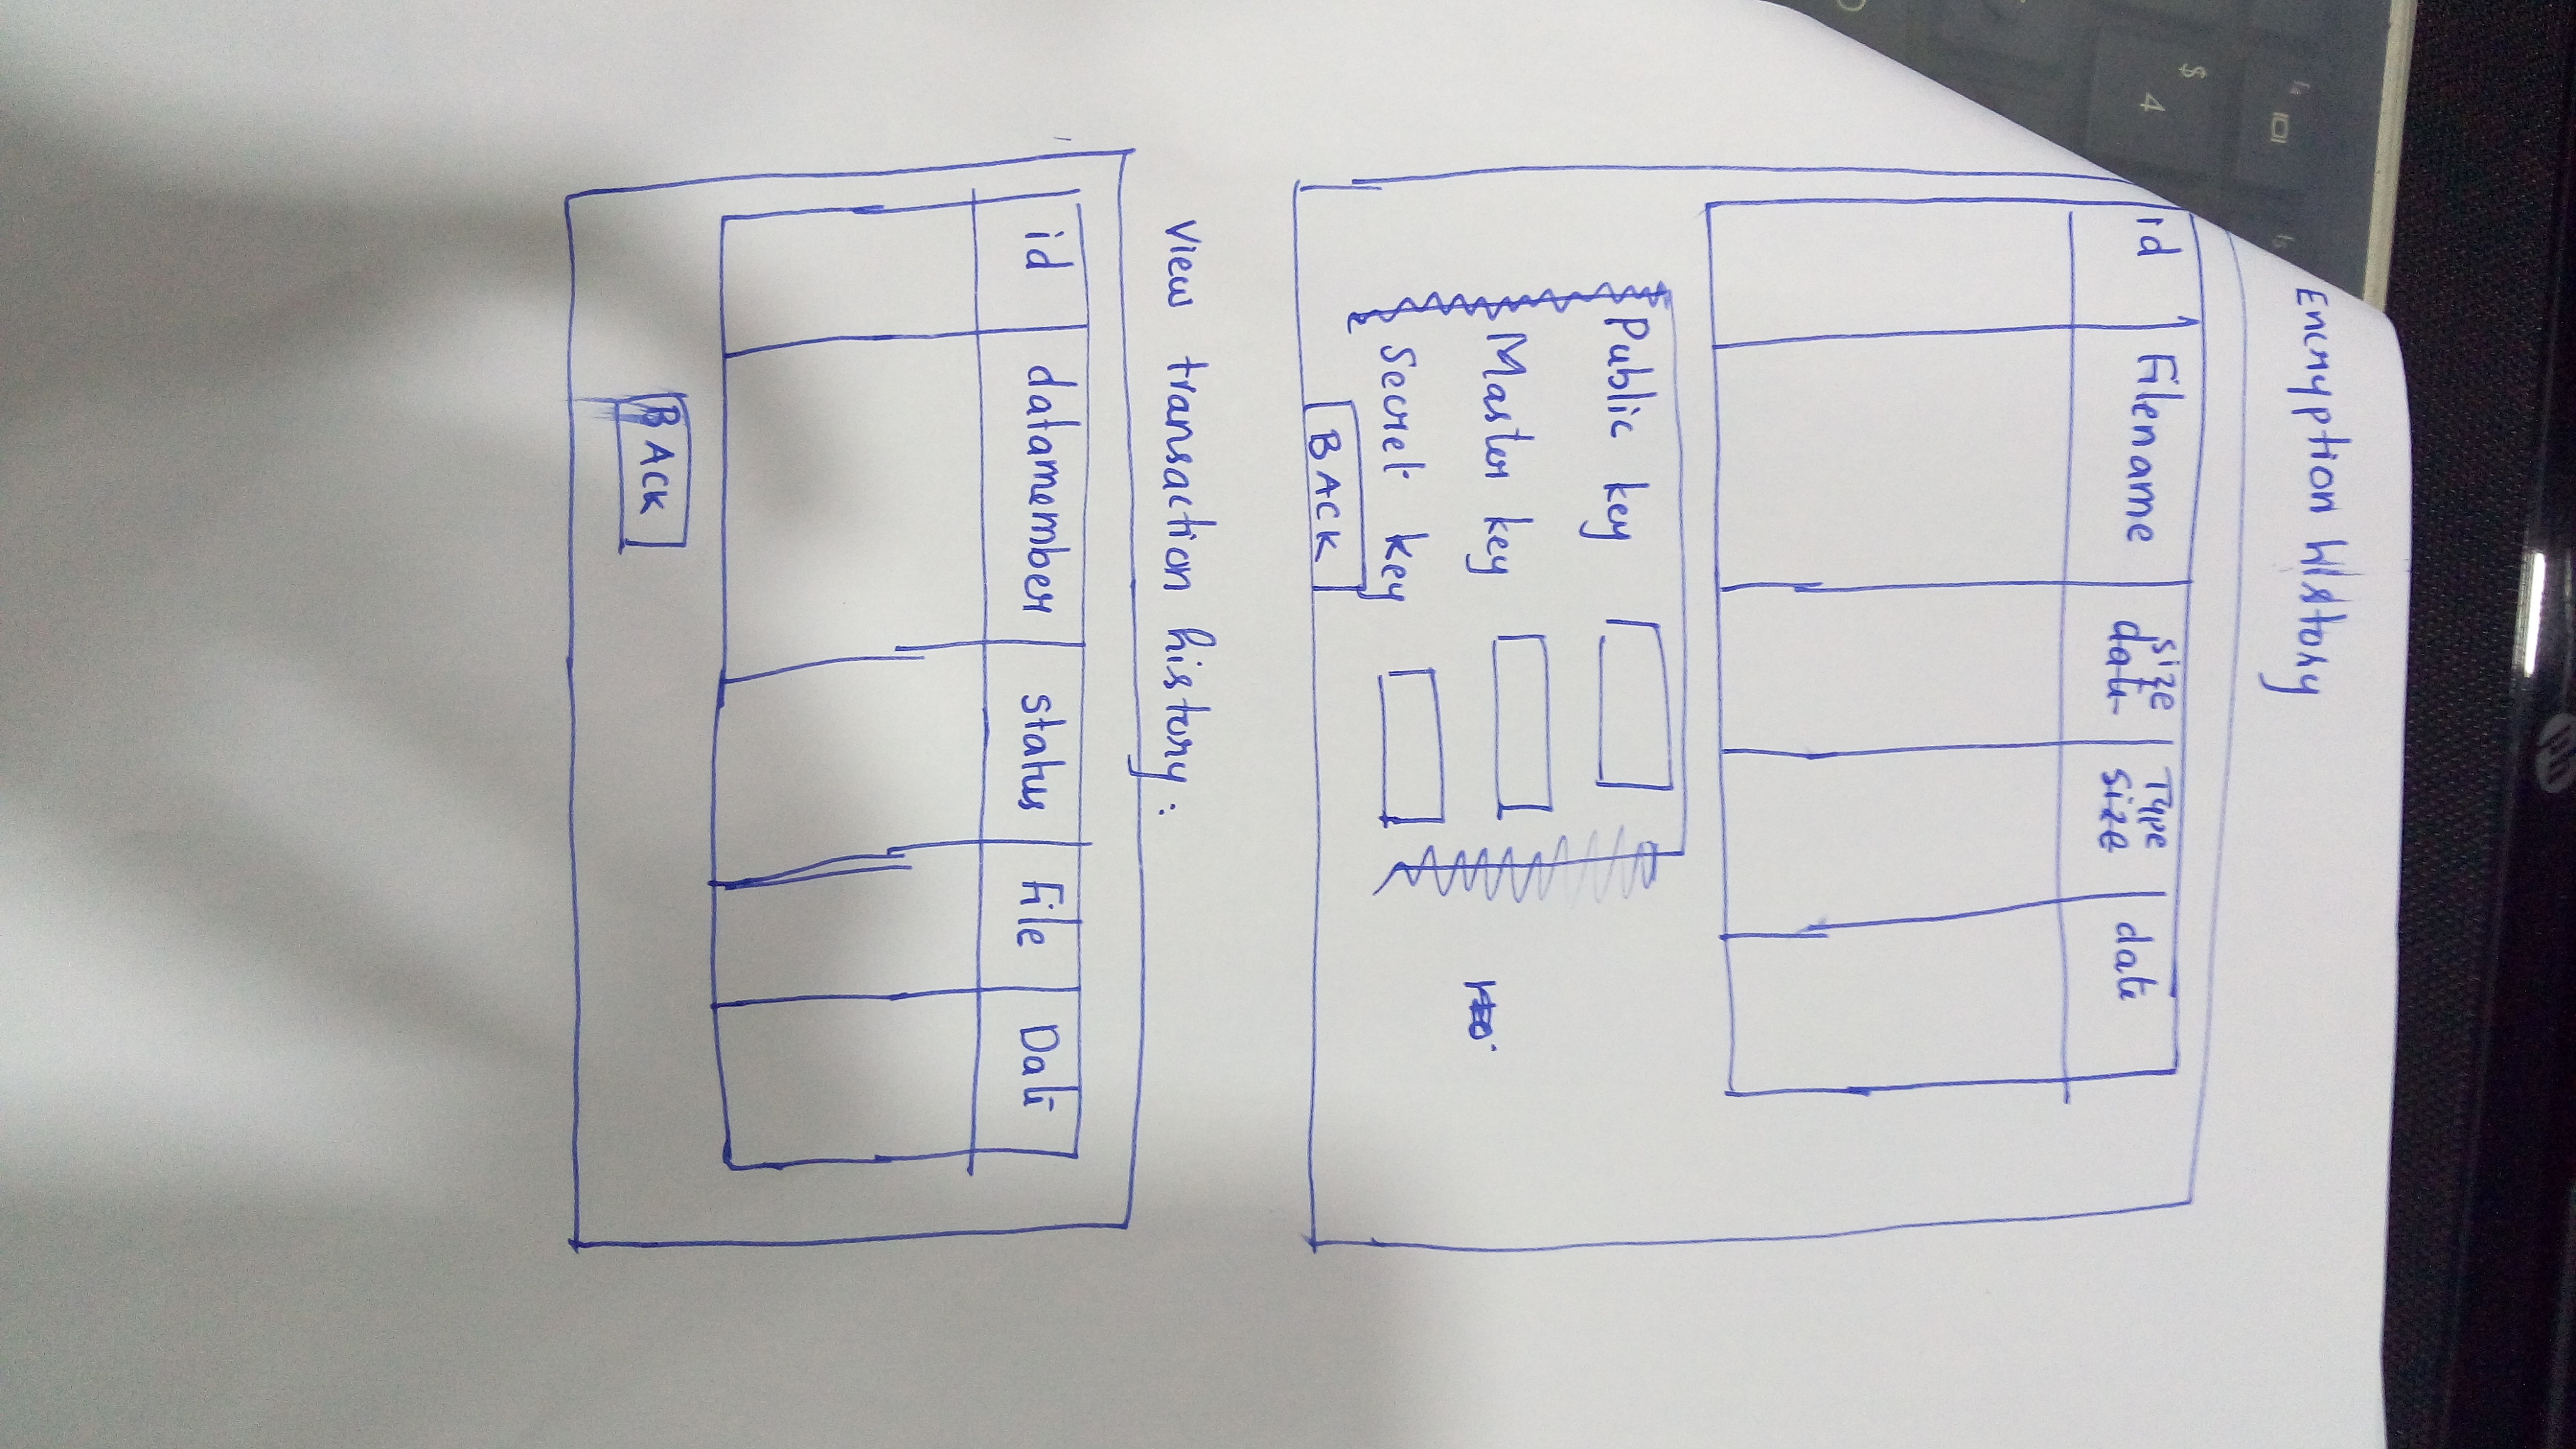 Encryption History
id Filename size Type date
date size
Public key
Master key
Secret key
BACK
View transaction history:
id datamember status File Date
BACK
$
4
hp